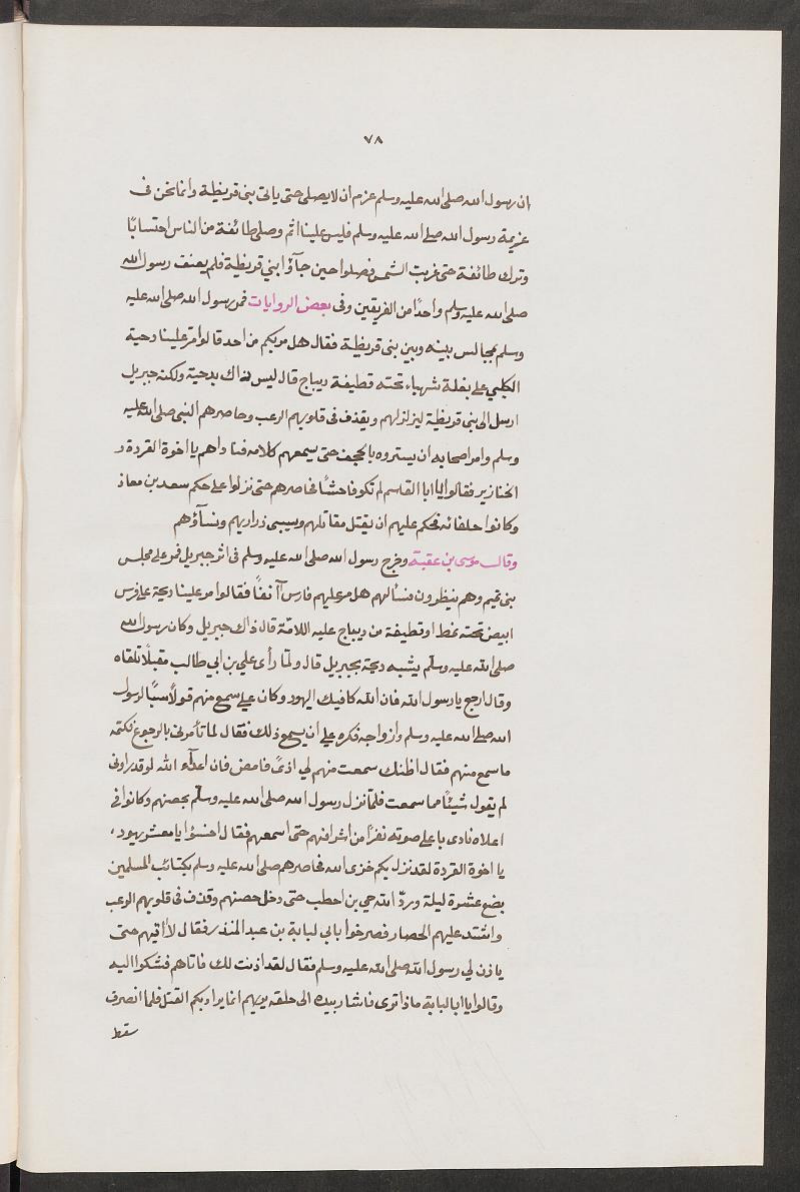 ٧٨
ان رسول الله صلى الله عليه وسلم عزم ان لا يصلى حتى ياتى بنى قريظة وانما نحن فى
عزيمة رسول الله صلى الله عليه وسلم فليس علينا اثم وصلى طائفة من الناس احتسابًا
وترك طائفة حتى غربت الشمس فصلوا حين جآؤا بني قريظة فلم يعنف رسول الله
صلى الله عليه وسلم واحدًا من الفريقين وفى بعض الروايات فمر رسول الله صلى الله عليه
وسلم بمجالس بينه وبين بنى قريظة فقال هل مر بكم من احد قالوا مرّ علينا دحية
الكلبي على بغلة شهباء تحته قطيفة ديباج قال ليس ذاك بدحية ولكنه جبريل
ارسل الى بني قريظة ليزلزلهم ويقذف فى قلوبهم الرعب وحاصرهم النبي صلى الله عليه
وسلم وامر اصحابه ان يستروه بالحجف حتى يسمعهم كلامه فناداهم يا اخوة القردة و
الخنازير فقالوا يا ابا القاسم لم تكو فاحشًا فحاصرهم حتى نزلوا على حكم سعد بن معاذ
وكانوا حلفائه فحكم عليهم ان يقتل مقاتلهم ويسبى ذراريهم ونسآؤهم
وقال موسى بن عقبة وخرج رسول الله صلى الله عليه وسلم فى اثر جبريل فمر على مجلس
بنى تميم وهم ينظرون فسئالهم هل مر عليهم فارس آنفًا فقالوا مر علينا دحية على فرس
ابيض تحته نمط او قطيفة من ديباج عليه اللامّة قال ذاك جبريل وكان رسول الله
صلى الله عليه وسلّم يشبه دحية بجبريل قال ولمّا رأى علي بن ابي طالب مقبلًا تلقاه
وقال ارجع يا رسول الله فان الله كافيك اليهود وكان علي سمع منهم قولًا سبًّا لرسول
الله صلى الله عليه وسلم وازواجه فكره علي ان يسمع ذلك فقال لما تأمرنى بالرجوع فكتمه
ما سمع منهم فقال اظنك سمعت منهم لي اذىً فامض فان اعدآء الله لو قد راونى
لم يقول شيئًا مما سمعت فلمّا نزل رسول الله صلى الله عليه وسلّم بحصنهم وكانوا في
اعلاه نادى باعلى صوته نفرًا من اشرافهم حتى اسمعهم فقال اخسؤا يا معشر يهود،
يا اخوة القردة لقد نزل بكم خزى الله فحاصرهم صلى الله عليه وسلم بكتائب المسلمين
بضع عشرة ليلة وردّ الله حي بن اخطب حتى دخل حصنهم وقذف فى قلوبهم الرعب
واشتد عليهم الحصار فصرخوا بابي لبابة بن عبد المنذر فقال لا اتيهم حتى
ياذن لي رسول الله صلى الله عليه وسلم فقال لقد اذنت لك فاتاهم فشكوا اليه
وقالوا يا ابا لبابة ماذا ترى فاشار بيده الى حلقه يريهم انما يراد بكم القتل فلما انصرف
سقط